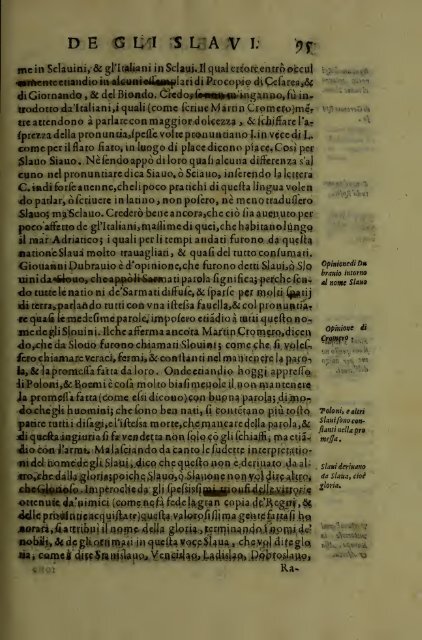 DE GLI SLAVI. 95
me in Sclauini, & gl'Italiani in Sclaui. Il qual errore entrò occul
tamente etiandio in alcuni essemplari di Procopio di Cesarea, &
di Giornando, & del Biondo. Credo, se non m'inganno, fù in-
trodotto da'Italiani, i quali (come scriue Martin Cromero) mẽ-
tre attendono à parlare con maggior dolcezza, & schiffare l'a-
sprezza della pronuntia, spesse volte pronuntiano I. in vece di L.
come per il flato fiato, in luogo di place dicono piace. Così per
Slauo Siauo. Nè sendo appò di loro quasi alcuna differenza s'al
cuno nel pronuntiare dica Siauo, ò Sciauo, inserendo la lettera
C. indi forse auenne, che li poco pratichi di questa lingua volen
do parlar, ò scriuere in latino, non posero, nè meno tradussero
Slauo; ma Sclauo. Crederò bene ancora, che ciò sia auenuto per
poco affetto de gl'Italiani, massime di quei, che habitano lungo
il mar Adriatico; i quali per li tempi andati furono da questa
natione Slaua molto trauagliati, & quasi del tutto consumati.
Giouanni Dubrauio è d'opinione, che furono detti Slaui, ò Slo
uini da Slouo, che appò li Sarmati parola significa; perche sen-
do tutte le nationi de Sarmati diffuse, & sparse per molti spatij
di terra, parlando tutti con vna istessa fauella, & col pronuntia-
re quasi le medesime parole, imposero etiãdio à tutti questo no-
me de gli Slouini. Ilche afferma ancora Martin Cromero, dicen
do, che da Slouo furono chiamati Slouini; come che si voles-
sero chiamare veraci, fermi, & constanti nel mantenere la paro-
la, & la promessa fatta da loro. Onde etiandio hoggi appresso
di Poloni, & Boemi è cosa molto biasimeuole il non mantenere
la promessa fatta (come essi dicono) con buon parola; di mo-
do che gli huomini; che sono ben nati, si contẽtano più tosto
patire tutti i disagi, e l'istessa morte, che mancare della parola, &
di questa ingiuria si fa vendetta non solo cõ gli schiaffi, ma etiã-
dio con l'armi. Ma lasciando da canto le sudette interpretatio-
ni del nome de gli Slaui, dico che questo non è deriuato da al-
tro, che dalla gloria; poiche Slauo, ò Slauone non vol dire altro,
che Glorioso. Imperoche da gli spessissimi trionfi delle vittorie
ottenute da'nimici (come ne fà fede la gran copia de'Regni, &
delle prouintie acquistate) questa valorosissima gente fattasi ho
norata, si attribuì il nome della gloria, terminando i nomi de'
nobili, & de gli ottimati in questa voce Slaua, che vol dire glo
ria; come è dire Stanislauo, Venceslao, Ladislao, Dobroslauo,
Ra-
Opinione di Du
brauio intorno
al nome Slauo
Opinione di
Cromero
Poloni, e altri
Slaui sono con-
stanti nella pro
messa.
Slaui deriuano
da Slaua, cioè
gloria.